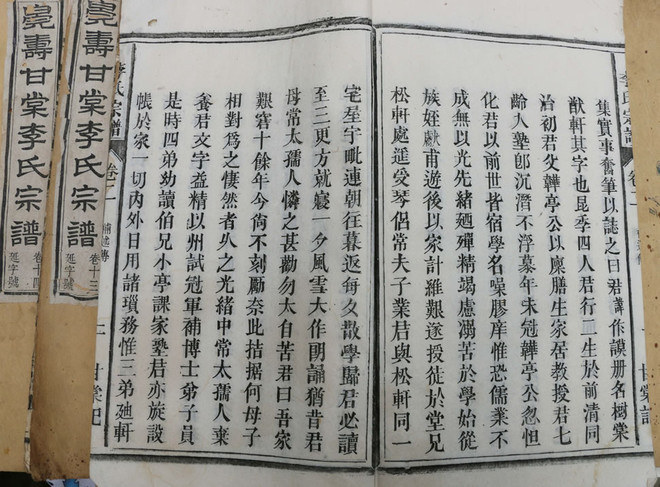 李氏宗譜
卷二
甘棠記
集實事奮筆以誌之曰君諱作謨册名樹棠
猷軒其字也昆季四人君行二生於前清同
治初君父韡亭公以廩膳生家居教授君七
齡入塾卽沉潛不浮慕年未冠韡亭公忽怛
化君以前世皆宿學名噪膠庠惟恐儒業不
成無以光先緒廼殫精竭慮溺苦於學始從
族姪獻甫遊後以家計維艱遂授徒於堂兄
松軒處遥爰琴侶常夫子業 與松軒同一
宅屋宇毗連朝往暮返每夕散學歸君必讀
至三更方就寢一夕風雪大作朗誦猶昔君
母常太孺人憐之甚勸勿太自苦君曰吾家
艱窘十餘年今尙不刻勵奈此拮据何母子
相對爲之悽然者乆之光緒中常太孺人棄
養君文字益精以州試冠軍補博士弟子員
是時四弟幼讀伯兄小亭課家塾君亦族設
帳於家一切內外日用諸瑣務惟三弟廸軒
李氏宗譜
卷二
甘棠記
壽甘棠李氏宗譜
卷十三
延字號
壽甘棠李氏宗譜
卷十四
延字號